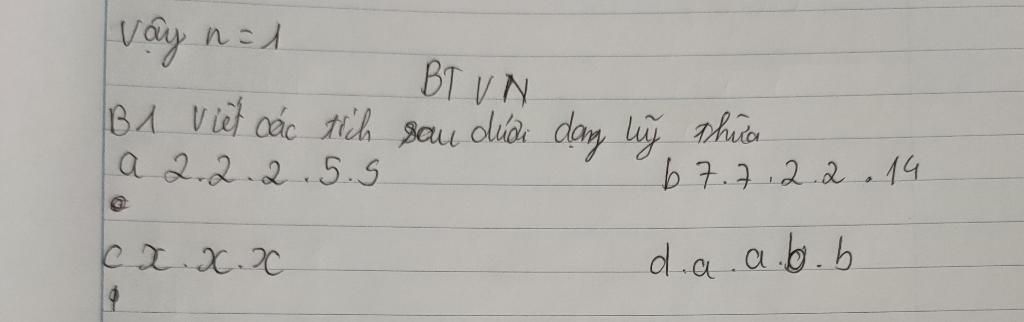 Vậy n = 1
BTVN
B1 Viết các tích sau dưới dạng luỹ thừa
a 2.2.2.5.5
b 7.7.2.2.14
c x.x.x
d.a.a.b.b